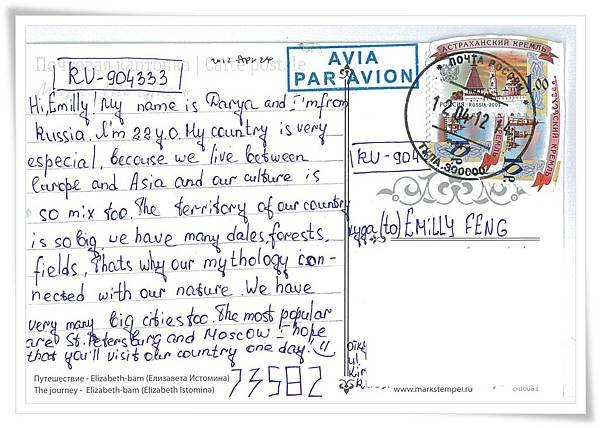 Почтовая карточка | Carte postale
2012 Apr 24
RU-904333
AVIA
PAR AVION
АСТРАХАНСКИЙ КРЕМЛЬ
ПОЧТА РОССИИ
РОССИЯ · RUSSIA · 2009
1.00
04.12
300000
Hi, Emilly! My name is Darya and I'm from
Russia. I'm 22 y.o. My country is very
especial, because we live between
Europe and Asia and our culture is
so mix too. The territory of our country
is so big, we have many dales, forests,
fields, Thats why our mythology con-
nected with our nature. We have
very many big cities too. The most popular
are St. Petersburg and Moscow. I hope
that you'll visit our country one day!
RU-904
куда (to) EMILLY FENG
Путешествие - Elizabeth-bam (Елизавета Истомина)
The journey - Elizabeth-bam (Elizabeth Istomina)
73582
www.markstempel.ru